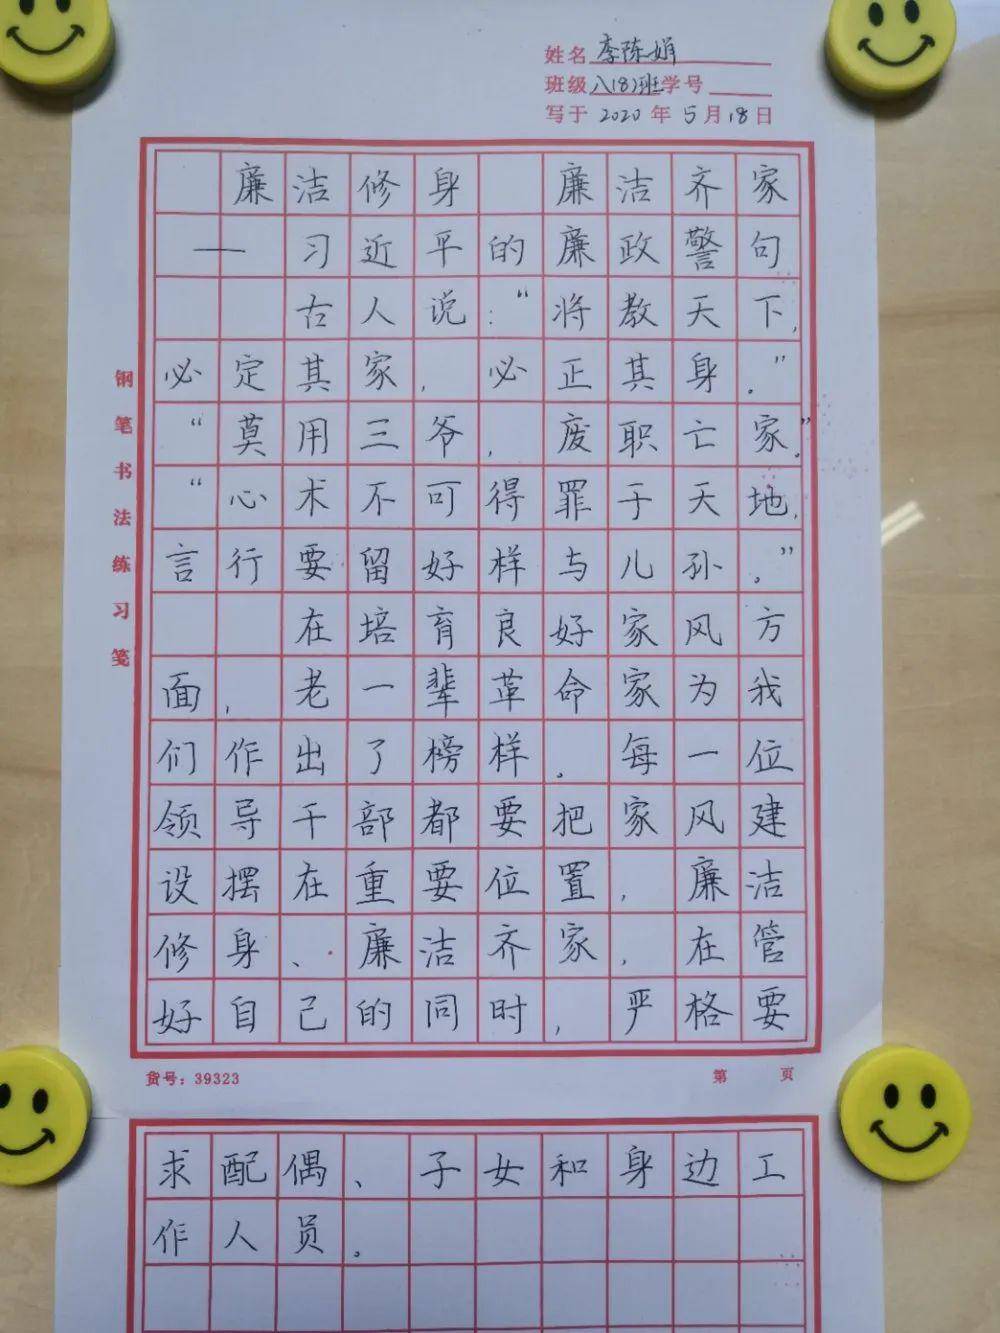 姓名 李陈娟
班级 八(8)班 学号
写于 2020 年 5 月 18 日
廉洁修身 廉洁齐家
——习近平的廉政警句
古人说:“将教天下,
必定其家,必正其身。”
“莫用三爷,废职亡家。”
“心术不可得罪于天地,
言行要留好样与儿孙。”
在培育良好家风方
面,老一辈革命家为我
们作出了榜样。每一位
领导干部都要把家风建
设摆在重要位置,廉洁
修身、廉洁齐家,在管
好自己的同时,严格要
钢笔书法练习笺
货号:39323 第 页
求配偶、子女和身边工
作人员。